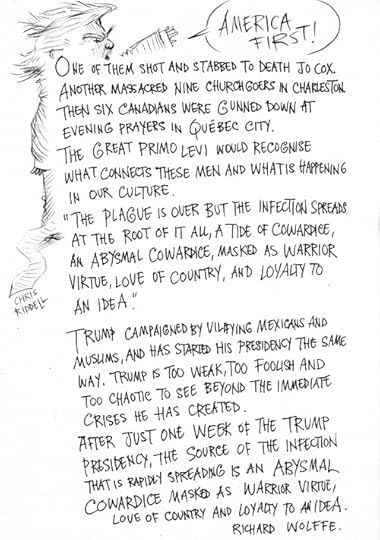 AMERICA
FIRST!
ONE OF THEM SHOT AND STABBED TO DEATH JO COX.
ANOTHER MASSACRED NINE CHURCHGOERS IN CHARLESTON.
THEN SIX CANADIANS WERE GUNNED DOWN AT
EVENING PRAYERS IN QUÉBEC CITY.
THE GREAT PRIMO LEVI WOULD RECOGNISE
WHAT CONNECTS THESE MEN AND WHAT IS HAPPENING
IN OUR CULTURE.
"THE PLAGUE IS OVER BUT THE INFECTION SPREADS
AT THE ROOT OF IT ALL, A TIDE OF COWARDICE,
AN ABYSMAL COWARDICE, MASKED AS WARRIOR
VIRTUE, LOVE OF COUNTRY, AND LOYALTY TO
AN IDEA."
CHRIS
RIDDELL
TRUMP CAMPAIGNED BY VILIFYING MEXICANS AND
MUSLIMS, AND HAS STARTED HIS PRESIDENCY THE SAME
WAY. TRUMP IS TOO WEAK, TOO FOOLISH AND
TOO CHAOTIC TO SEE BEYOND THE IMMEDIATE
CRISES HE HAS CREATED.
AFTER JUST ONE WEEK OF THE TRUMP
PRESIDENCY, THE SOURCE OF THE INFECTION
THAT IS RAPIDLY SPREADING IS AN ABYSMAL
COWARDICE MASKED AS WARRIOR VIRTUE,
LOVE OF COUNTRY AND LOYALTY TO AN IDEA.
RICHARD WOLFFE.